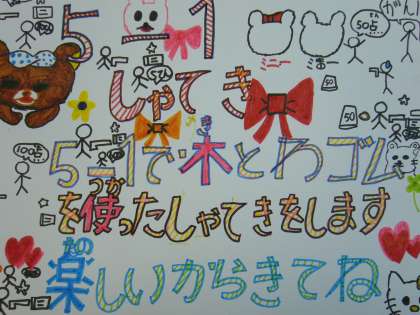 5-1
しゃてき
ミニー ミッキー
5-1で木とわゴム
を使ったしゃてきをします
楽しいからきてね
き
つか
たの
50点
50
50
100点